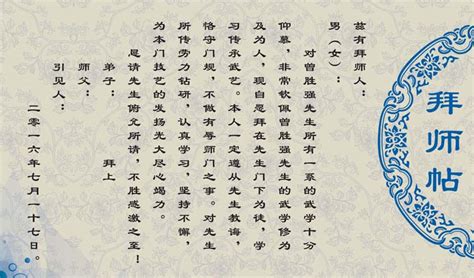 拜师帖
兹有拜师人：
男（女）：
对曾胜强先生所有一系的武学十分
仰慕，非常钦佩曾胜强先生的武学修为
及为人，现自愿拜在先生门下为徒，学
习传承武艺。本人一定遵从先生教诲，
恪守门规，不做有辱师门之事。对先生
所传劳力钻研，认真学习，坚持不懈，
为本门技艺的发扬光大尽心竭力。
恳请先生俯允所请，不胜感激之至！
弟子： 拜上
师父：
引见人：
二零一六年七月一十七日。